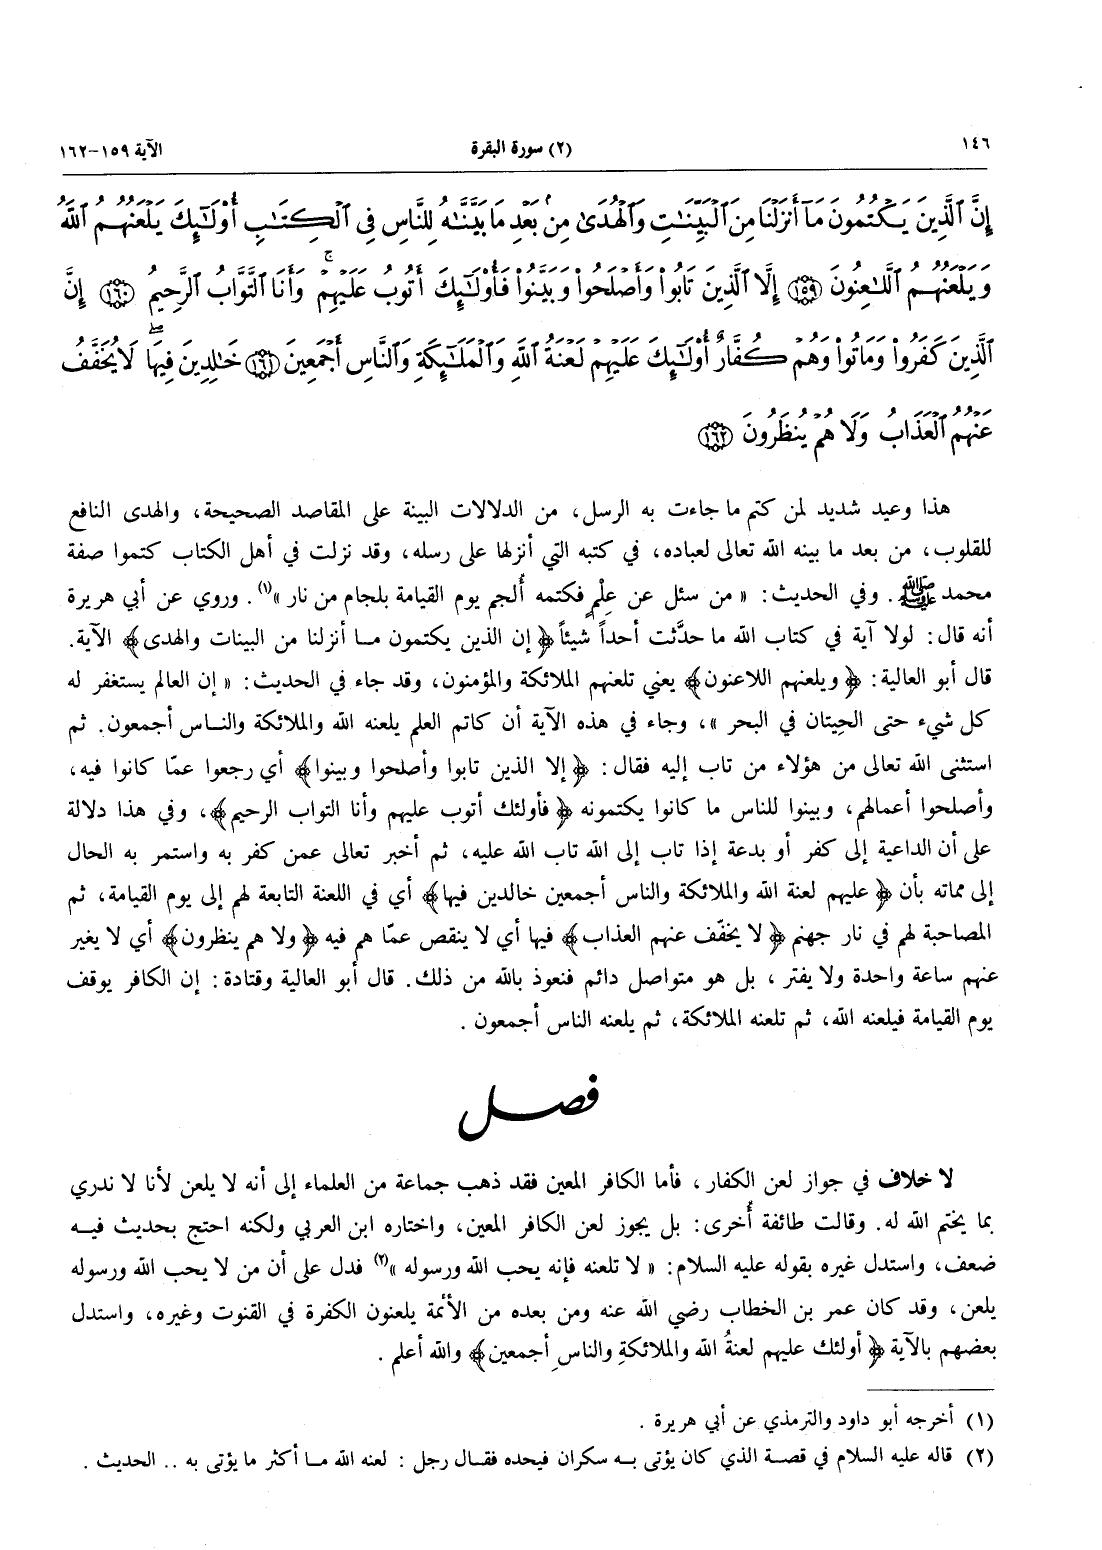 ١٤٦
(٢) سورة البقرة
الآية ١٥٩-١٦٢
إِنَّ ٱلَّذِينَ يَكْتُمُونَ مَآ أَنزَلْنَا مِنَ ٱلْبَيِّنَـٰتِ وَٱلْهُدَىٰ مِنۢ بَعْدِ مَا بَيَّنَّـٰهُ لِلنَّاسِ فِى ٱلْكِتَـٰبِ أُو۟لَـٰٓئِكَ يَلْعَنُهُمُ ٱللَّهُ
وَيَلْعَنُهُمُ ٱللَّـٰعِنُونَ ١٥٩ إِلَّا ٱلَّذِينَ تَابُوا۟ وَأَصْلَحُوا۟ وَبَيَّنُوا۟ فَأُو۟لَـٰٓئِكَ أَتُوبُ عَلَيْهِمْ ۚ وَأَنَا ٱلتَّوَّابُ ٱلرَّحِيمُ ١٦٠ إِنَّ
ٱلَّذِينَ كَفَرُوا۟ وَمَاتُوا۟ وَهُمْ كُفَّارٌ أُو۟لَـٰٓئِكَ عَلَيْهِمْ لَعْنَةُ ٱللَّهِ وَٱلْمَلَـٰٓئِكَةِ وَٱلنَّاسِ أَجْمَعِينَ ١٦١ خَـٰلِدِينَ فِيهَا ۖ لَا يُخَفَّفُ
عَنْهُمُ ٱلْعَذَابُ وَلَا هُمْ يُنظَرُونَ ١٦٢
هذا وعيد شديد لمن كتم ما جاءت به الرسل، من الدلالات البينة على المقاصد الصحيحة، والهدى النافع
للقلوب، من بعد ما بينه الله تعالى لعباده، في كتبه التي أنزلها على رسله، وقد نزلت في أهل الكتاب كتموا صفة
محمد ﷺ . وفي الحديث: « من سئل عن عِلْمٍ فكتمه أُلجم يوم القيامة بلجام من نار »(١). وروي عن أبي هريرة
أنه قال: لولا آية في كتاب الله ما حدَّثت أحداً شيئاً ﴿إن الذين يكتمون مـا أنزلنا من البينات والهدى﴾ الآية.
قال أبو العالية: ﴿ويلعنهم اللاعنون﴾ يعني تلعنهم الملائكة والمؤمنون، وقد جاء في الحديث: « إن العالم يستغفر له
كل شيء حتى الحِيتان في البحر »، وجاء في هذه الآية أن كاتم العلم يلعنه الله والملائكة والنـاس أجمعون. ثم
استثنى الله تعالى من هؤلاء من تاب إليه فقال: ﴿إلا الذين تابوا وأصلحوا وبينوا﴾ أي رجعوا عمّا كانوا فيه،
وأصلحوا أعمالهم، وبينوا للناس ما كانوا يكتمونه ﴿فأولئك أتوب عليهم وأنا التواب الرحيم﴾، وفي هذا دلالة
على أن الداعية إلى كفر أو بدعة إذا تاب إلى الله تاب الله عليه، ثم أخبر تعالى عمن كفر به واستمر به الحال
إلى مماته بأن ﴿عليهم لعنة الله والملائكة والناس أجمعين خالدين فيها﴾ أي في اللعنة التابعة لهم إلى يوم القيامة، ثم
المصاحبة لهم في نار جهنم ﴿لا يخفّف عنهم العذاب﴾ فيها أي لا ينقص عمّا هم فيه ﴿ولا هم ينظرون﴾ أي لا يغير
عنهم ساعة واحدة ولا يفتر ، بل هو متواصل دائم فنعوذ بالله من ذلك. قال أبو العالية وقتادة: إن الكافر يوقف
يوم القيامة فيلعنه الله، ثم تلعنه الملائكة، ثم يلعنه الناس أجمعون .
فصل
لا خلاف في جواز لعن الكفار ، فأما الكافر المعين فقد ذهب جماعة من العلماء إلى أنه لا يلعن لأنا لا ندري
بما يختم الله له. وقالت طائفة أُخرى: بل يجوز لعن الكافر المعين، واختاره ابن العربي ولكنه احتج بحديث فيـه
ضعف، واستدل غيره بقوله عليه السلام: « لا تلعنه فإنه يحب الله ورسوله »(٢) فدل على أن من لا يحب الله ورسوله
يلعن، وقد كان عمر بن الخطاب رضي الله عنه ومن بعده من الأئمة يلعنون الكفرة في القنوت وغيره، واستدل
بعضهم بالآية ﴿أولئك عليهم لعنةُ الله والملائكةِ والناسِ أجمعين﴾ والله أعلم .
(١) أخرجه أبو داود والترمذي عن أبي هريرة .
(٢) قاله عليه السلام في قصـة الذي كان يؤتى بـه سكران فيحده فقـال رجل : لعنه الله مـا أكثر ما يؤتى به .. الحديث .